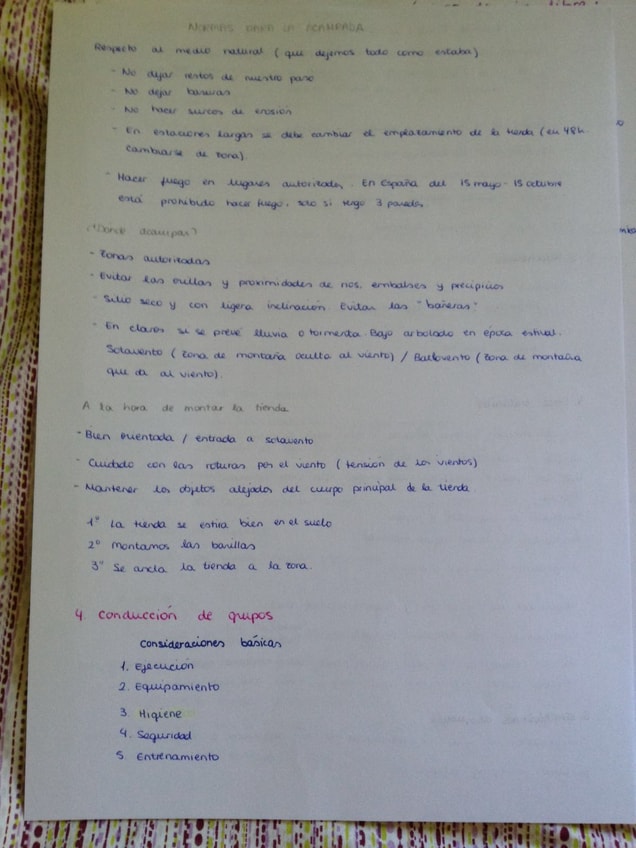 NORMAS PARA LA ACAMPADA
Respecto al medio natural (que dejemos todo como estaba)
- No dejar restos de nuestro paso
- No dejar basuras
- No hacer surcos de erosión
- En estaciones largas se debe cambiar el emplazamiento de la tienda (en 48h.
cambiarse de zona).
- Hacer fuego en lugares autorizados. En España del 15 mayo - 15 octubre
está prohibido hacer fuego, solo si tengo 3 paredes.
¿Donde acampar?
- Zonas autorizadas
- Evitar las orillas y proximidades de rios, embalses y precipicios
- Sitio seco y con ligera inclinación. Evitar las "bañeras"
- En claros si se prevé lluvia o tormenta. Bajo arbolado en época estival.
Sotavento (zona de montaña oculta al viento) / Barlovento (zona de montaña
que da al viento).
A la hora de montar la tienda
- Bien orientada / entrada a sotavento
- Cuidado con las roturas por el viento (tensión de los vientos)
- Mantener los objetos alejados del cuerpo principal de la tienda.
1º La tienda se estira bien en el suelo
2º Montamos las barillas
3º Se ancla la tienda a la zona.
4. Conducción de grupos
Consideraciones básicas
1. Ejecución
2. Equipamiento
3. Higiene
4. Seguridad
5. Entrenamiento